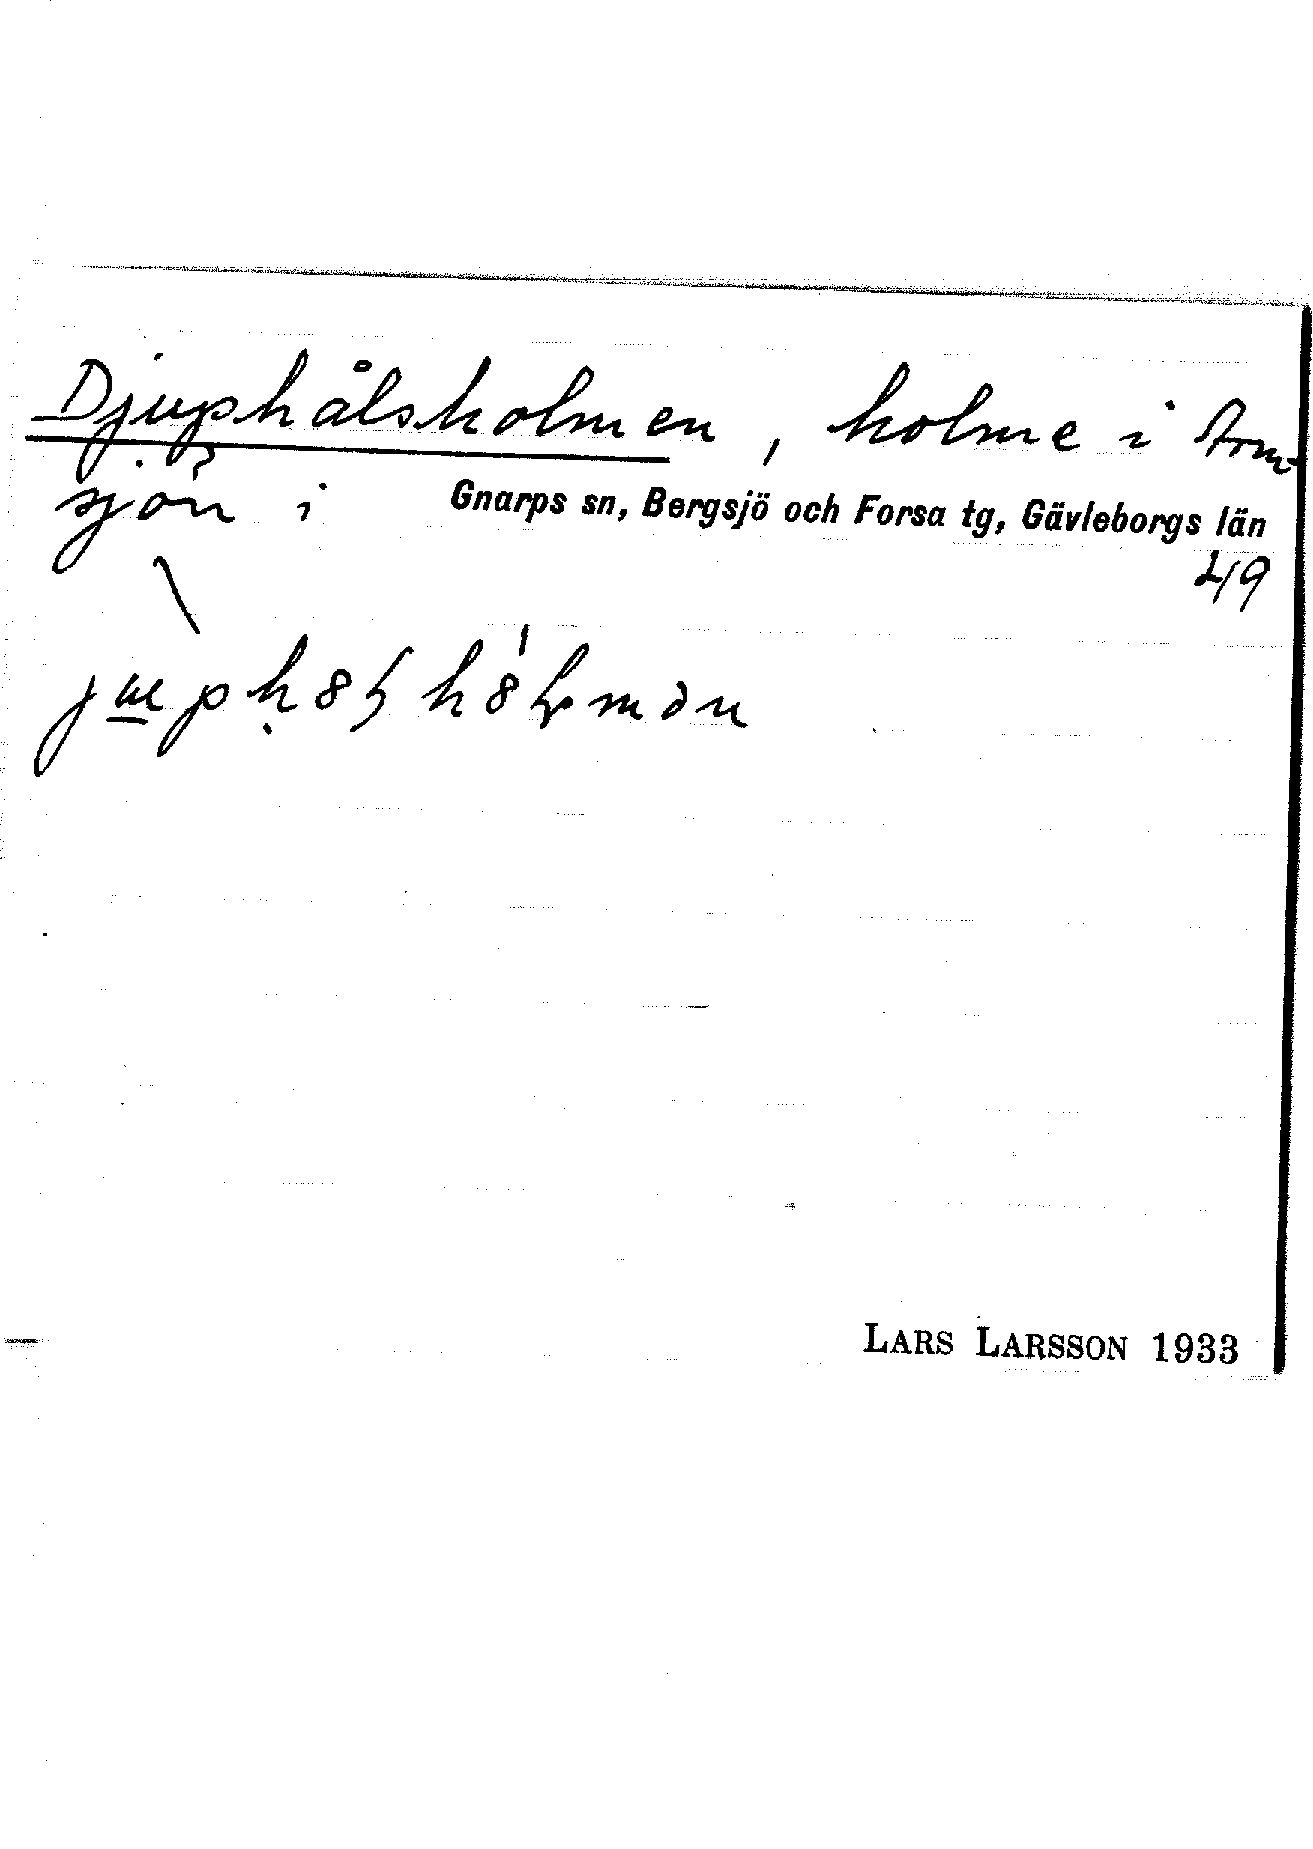 Djuphålsholmen, holme i
sjön i Gnarps sn, Bergsjö och Forsa tg, Gävleborgs län
49
LARS LARSSON 1933